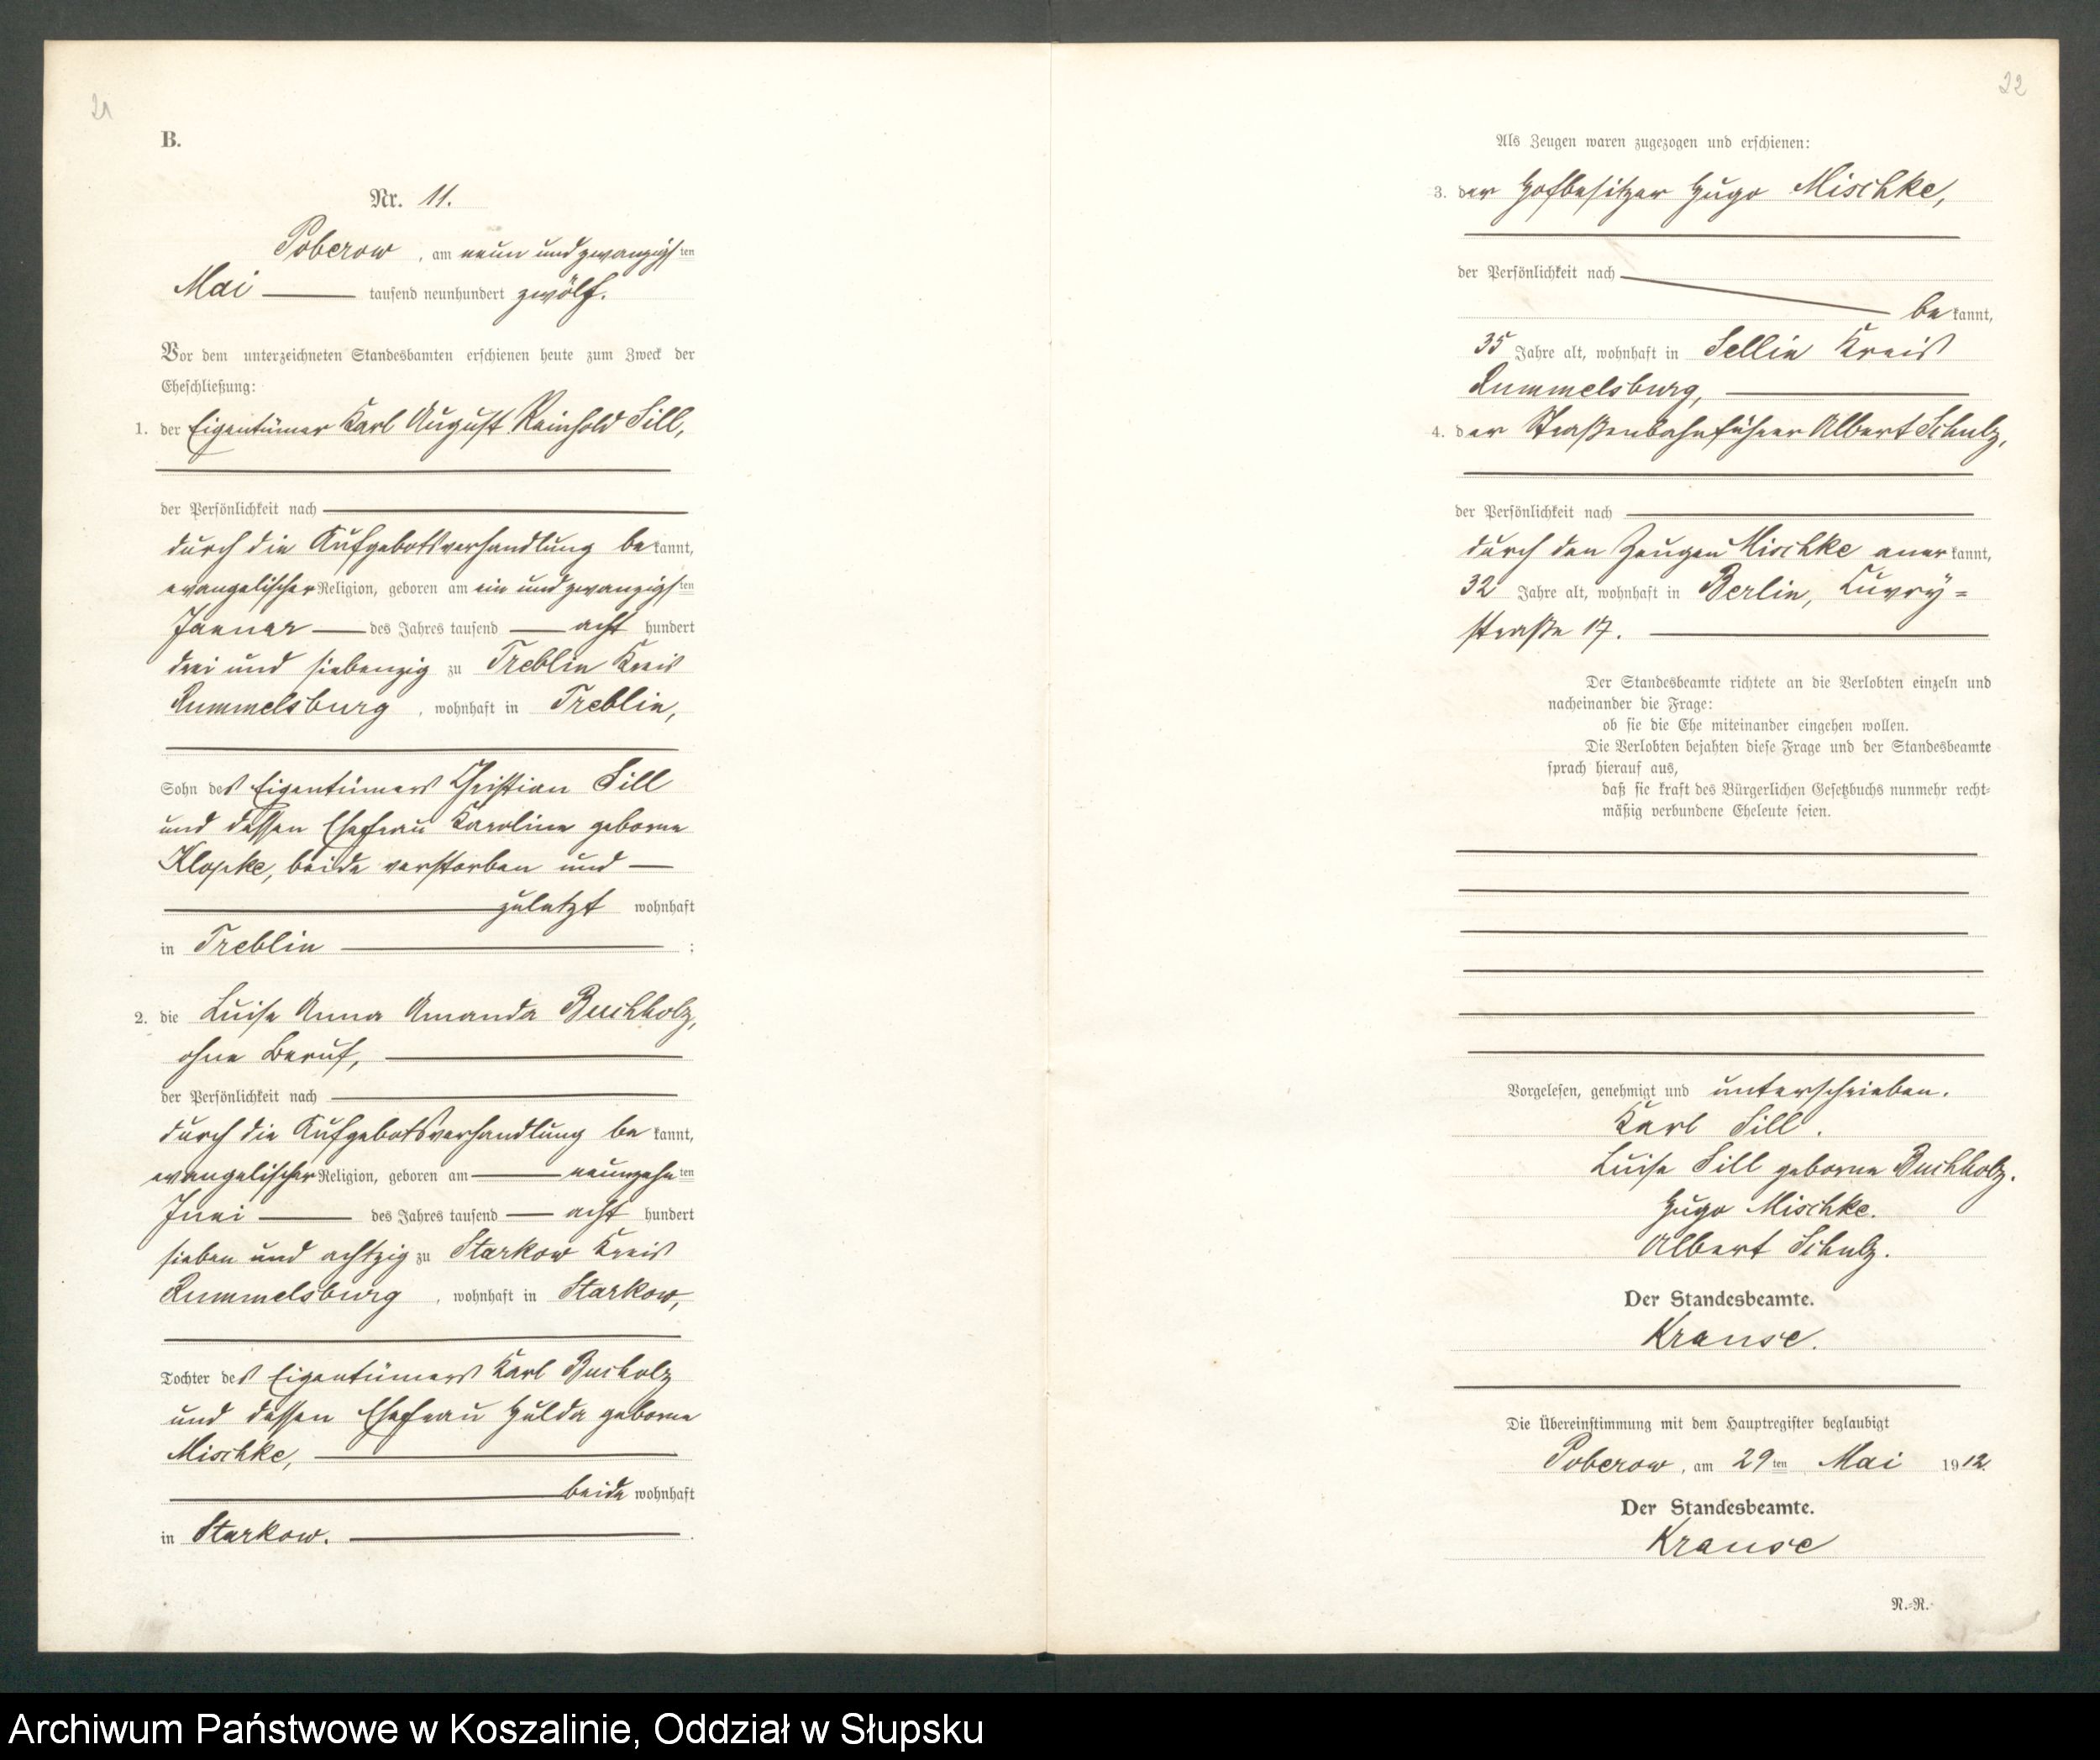 21
B.
Nr. 11.
Poberow, am neun und zwanzigsten
Mai tausend neunhundert zwölf.
Vor dem unterzeichneten Standesbamten erschienen heute zum Zweck der
Eheschließung:
1. der Eigentümer Karl August Reinhold Sill,
der Persönlichkeit nach
durch die Aufgebotsverhandlung bekannt,
evangelischer Religion, geboren am ein und zwanzigsten
Januar des Jahres tausend acht hundert
drei und siebenzig zu Treblin Kreis
Rummelsburg, wohnhaft in Treblin,
Sohn des Eigentümers Christian Sill
und dessen Ehefrau Karoline geborne
Klopke, beide verstorben und
zuletzt wohnhaft
in Treblin ;
2. die Luise Anna Amanda Buchholz,
ohne Beruf,
der Persönlichkeit nach
durch die Aufgebotsverhandlung bekannt,
evangelischer Religion, geboren am neunzehnten
Juni des Jahres tausend acht hundert
sieben und achtzig zu Starkow Kreis
Rummelsburg, wohnhaft in Starkow,
Tochter des Eigentümers Karl Bucholz
und dessen Ehefrau Hulda geborne
Mischke,
beide wohnhaft
in Starkow.
22
Als Zeugen waren zugezogen und erschienen:
3. der Hofbesitzer Hugo Mischke,
der Persönlichkeit nach
bekannt,
35 Jahre alt, wohnhaft in Sellin Kreis
Rummelsburg,
4. der Straßenbahnführer Albert Schulz,
der Persönlichkeit nach
durch den Zeugen Mischke anerkannt,
32 Jahre alt, wohnhaft in Berlin, Cuvry=
straße 17.
Der Standesbeamte richtete an die Verlobten einzeln und
nacheinander die Frage:
ob sie die Ehe miteinander eingehen wollen.
Die Verlobten bejahten diese Frage und der Standesbeamte
sprach hierauf aus,
daß sie kraft des Bürgerlichen Gesetzbuchs nunmehr recht-
mäßig verbundene Eheleute seien.
Vorgelesen, genehmigt und unterschrieben.
Karl Sill.
Luise Sill geborne Buchholz.
Hugo Mischke.
Albert Schulz.
Der Standesbeamte.
Krause.
Die Übereinstimmung mit dem Hauptregister beglaubigt
Poberow, am 29ten Mai 1912.
Der Standesbeamte.
Krause
N.-R.
Archiwum Państwowe w Koszalinie, Oddział w Słupsku